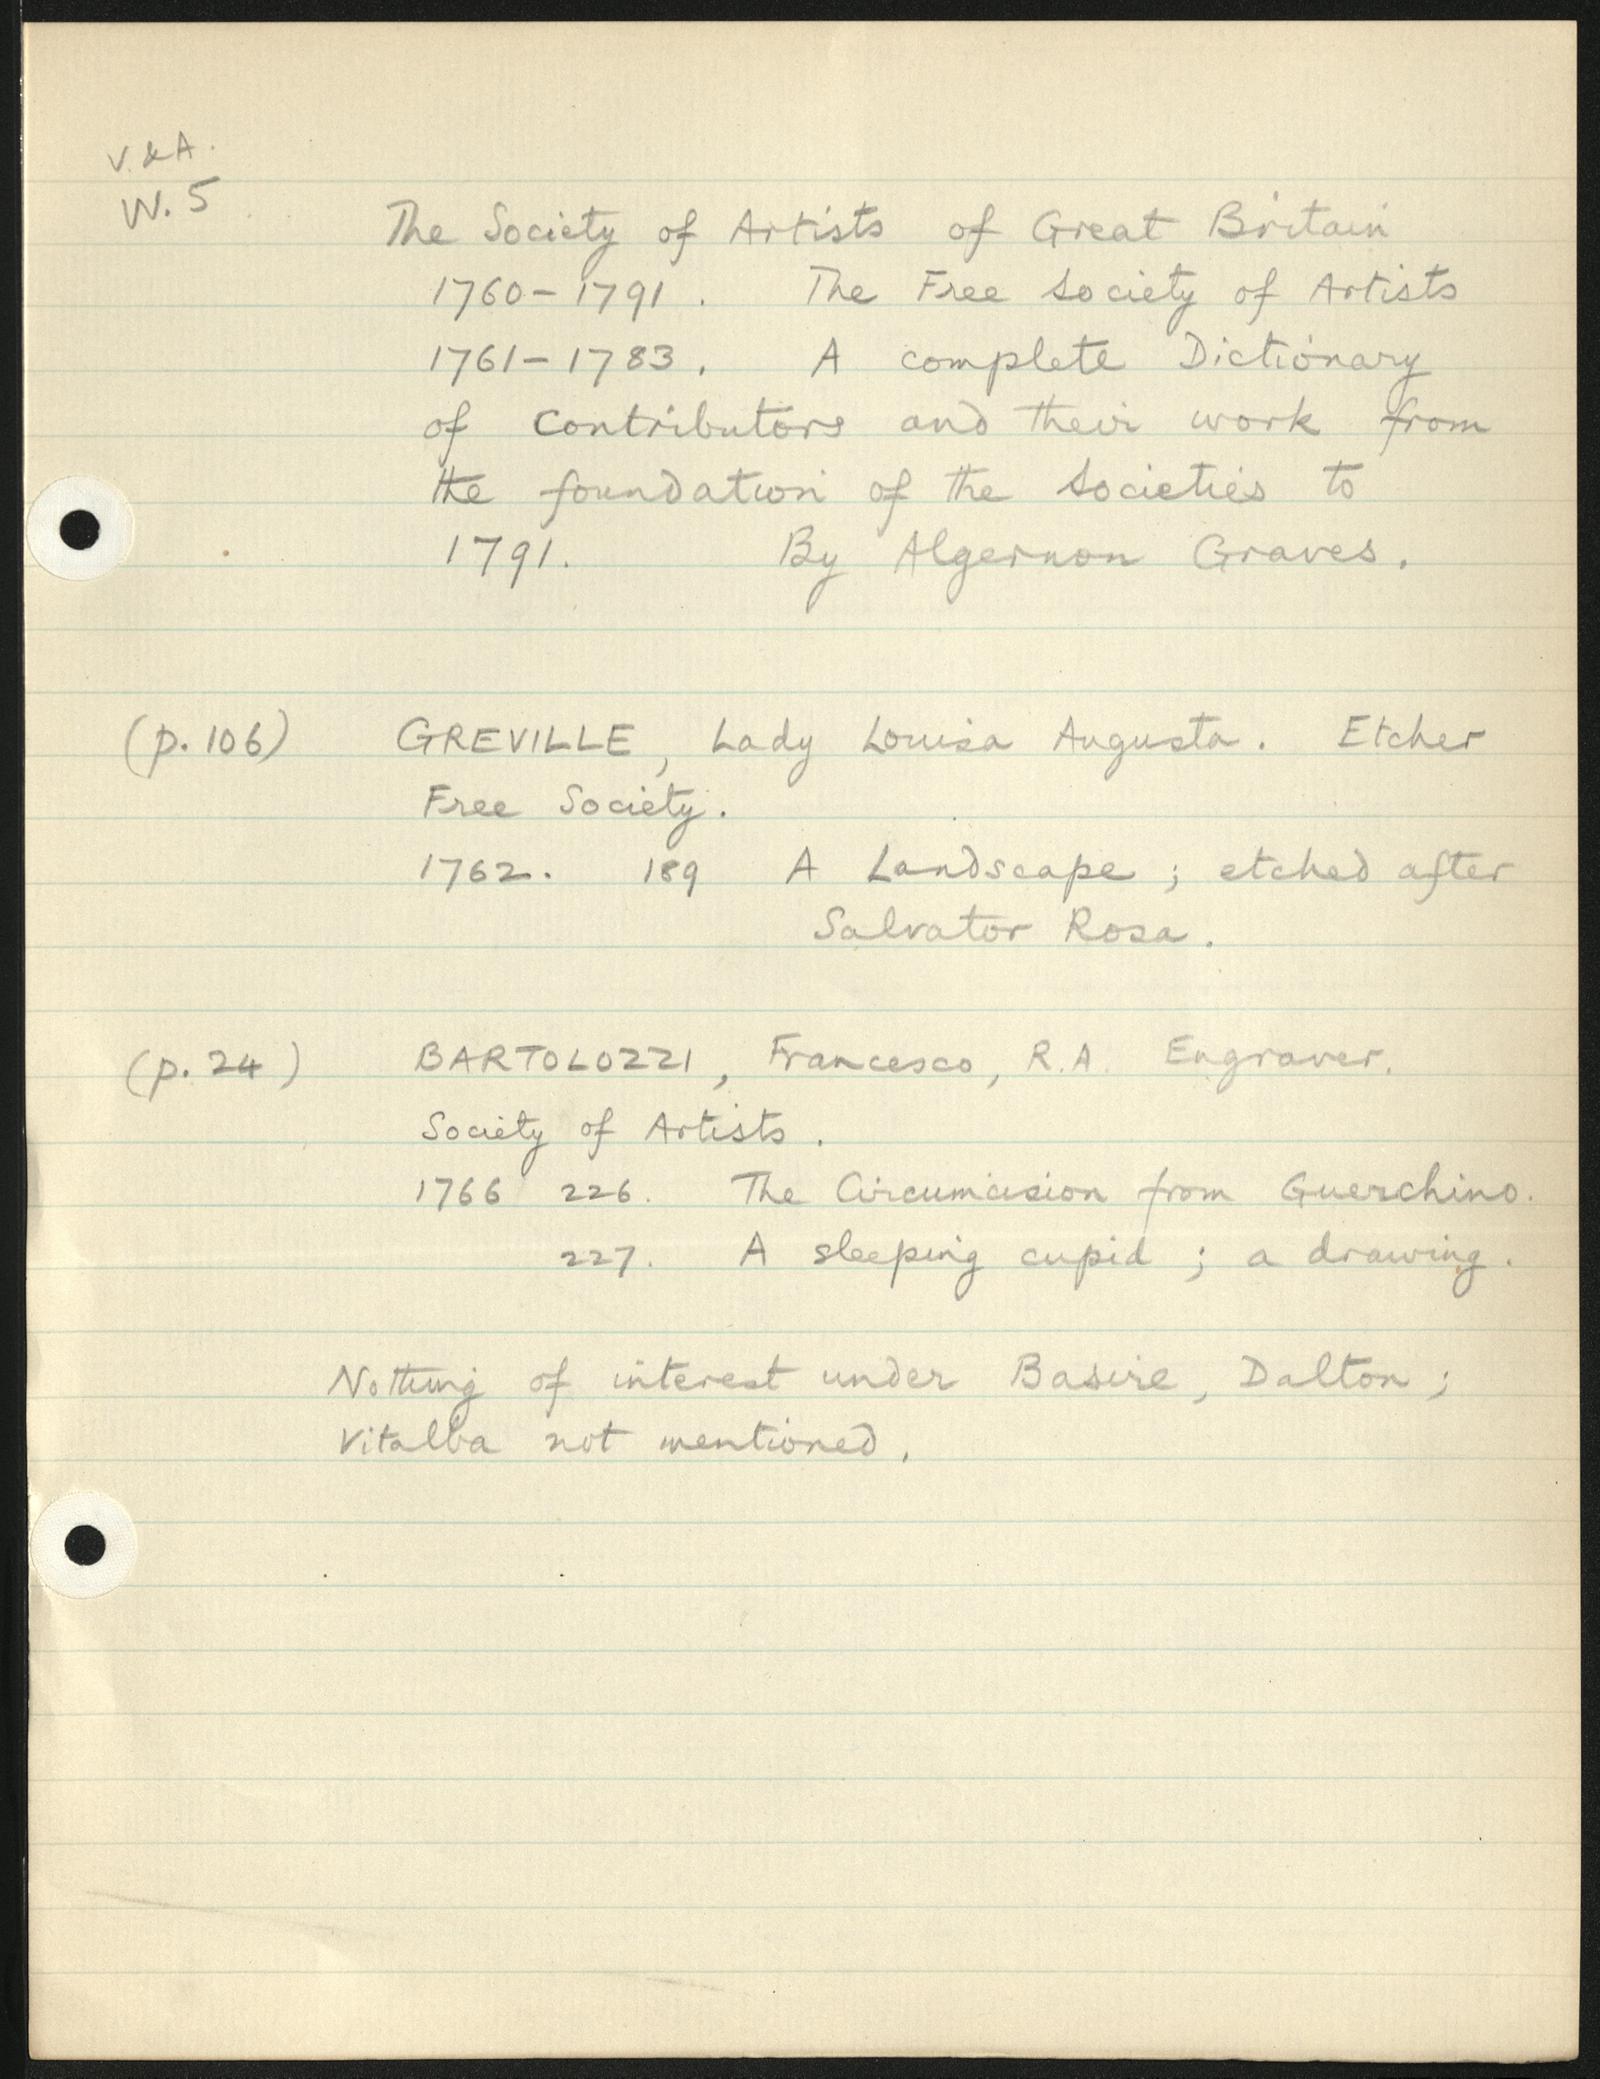 V. & A.
W. 5
The Society of Artists of Great Britain
1760-1791. The Free Society of Artists
1761-1783. A complete Dictionary
of Contributors and their work from
the foundation of the Societies to
1791. By Algernon Graves.
(p. 106) GREVILLE, Lady Louisa Augusta. Etcher
Free Society.
1762. 189 A Landscape; etched after
Salvator Rosa.
(p. 24) BARTOLOZZI, Francesco, R.A. Engraver.
Society of Artists.
1766 226. The Circumcision from Guerchino.
227. A sleeping cupid; a drawing.
Nothing of interest under Basire, Dalton;
Vitalba not mentioned.